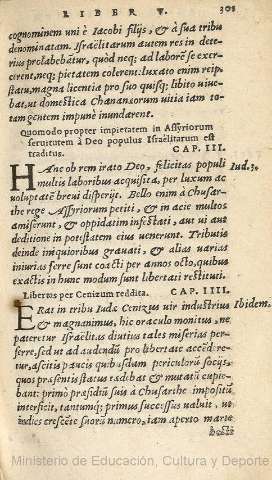 LIBER V. 308
cognominem uni è Iacobi filijs, & à sua tribu
denominatam. Israëlitarum autem res in dete-
rius prolabebatur, quod neq; ad laborē se exer-
cerent, neq; pietatem colerent: luxato enim reip.
statu, magna licentia pro suo quisq; libito viue-
bat, ut domestica Chananæorum uitia iam to-
tam gentem impune inundarent.
Quomodo propter impietatem in Assyriorum
seruitutem à Deo populus Israëlitarum est
traditus. CAP. III.
HAnc ob rem irato Deo, felicitas populi Iud. 3.
multis laboribus acquisita, per luxum ac
voluptatē breui disperijt. Bello enim à Chusar-
the rege Assyriorum petiti, & in acie multos
amiserunt, & oppidatim infestati, aut ui aut
deditione in potestatem eius uenerunt. Tributis
deinde iniquioribus grauati, & alias varias
iniurias ferre sunt coacti per annos octo, quibus
exactis in hunc modum sunt libertati restituti.
Libertos per Cenizum reddita. CAP. IIII.
ERat in tribu Iudæ Cenizus uir industrius Ibidem.
& magnanimus, hic oraculo monitus, ne
pateretur Israëlitas diutius tales miserias per-
ferre, sed ut ad audendū pro libertate accēderetur,
ascitis paucis quibusdam periculorū socijs,
quos præsentis status tædebat & mutatū cupie-
bant: primò præsidiū suis à Chusarthe impositū
interficit, tantumq; primus successus ualuit, ut
indies crescēte suorū numero, iam aperto marte
hosti
Ministerio de Educación, Cultura y Deporte